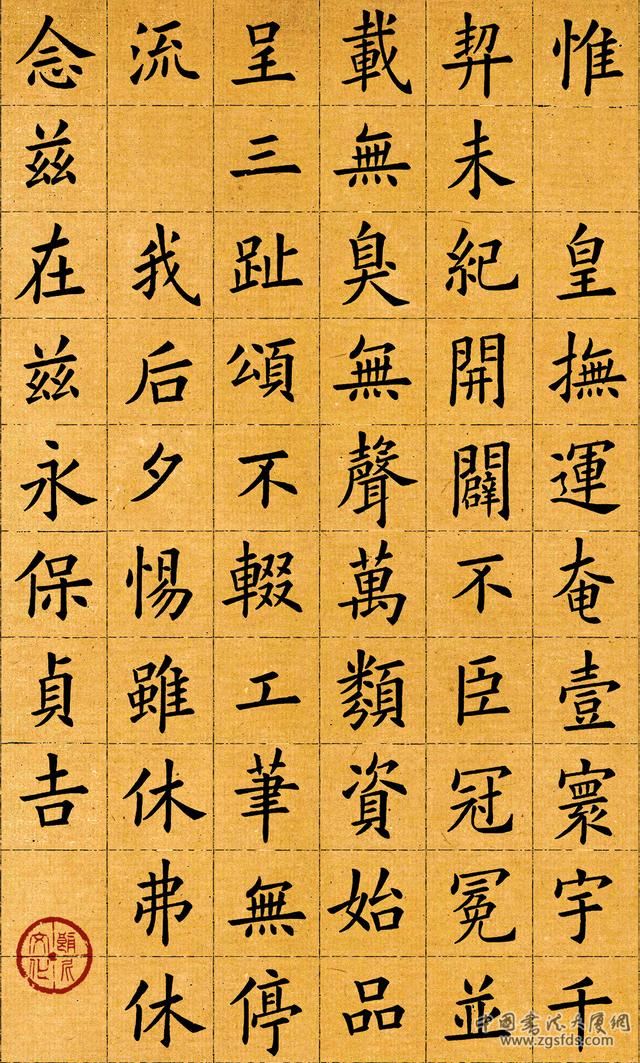 惟 皇撫運奄壹寰宇千
契未紀開闢不臣冠冕並
載無臭無聲萬類資始品
呈三趾頌不輟工筆無停
流 我后夕惕雖休弗休
念兹在兹永保貞吉
中國書法大展網
www.zgsfds.com